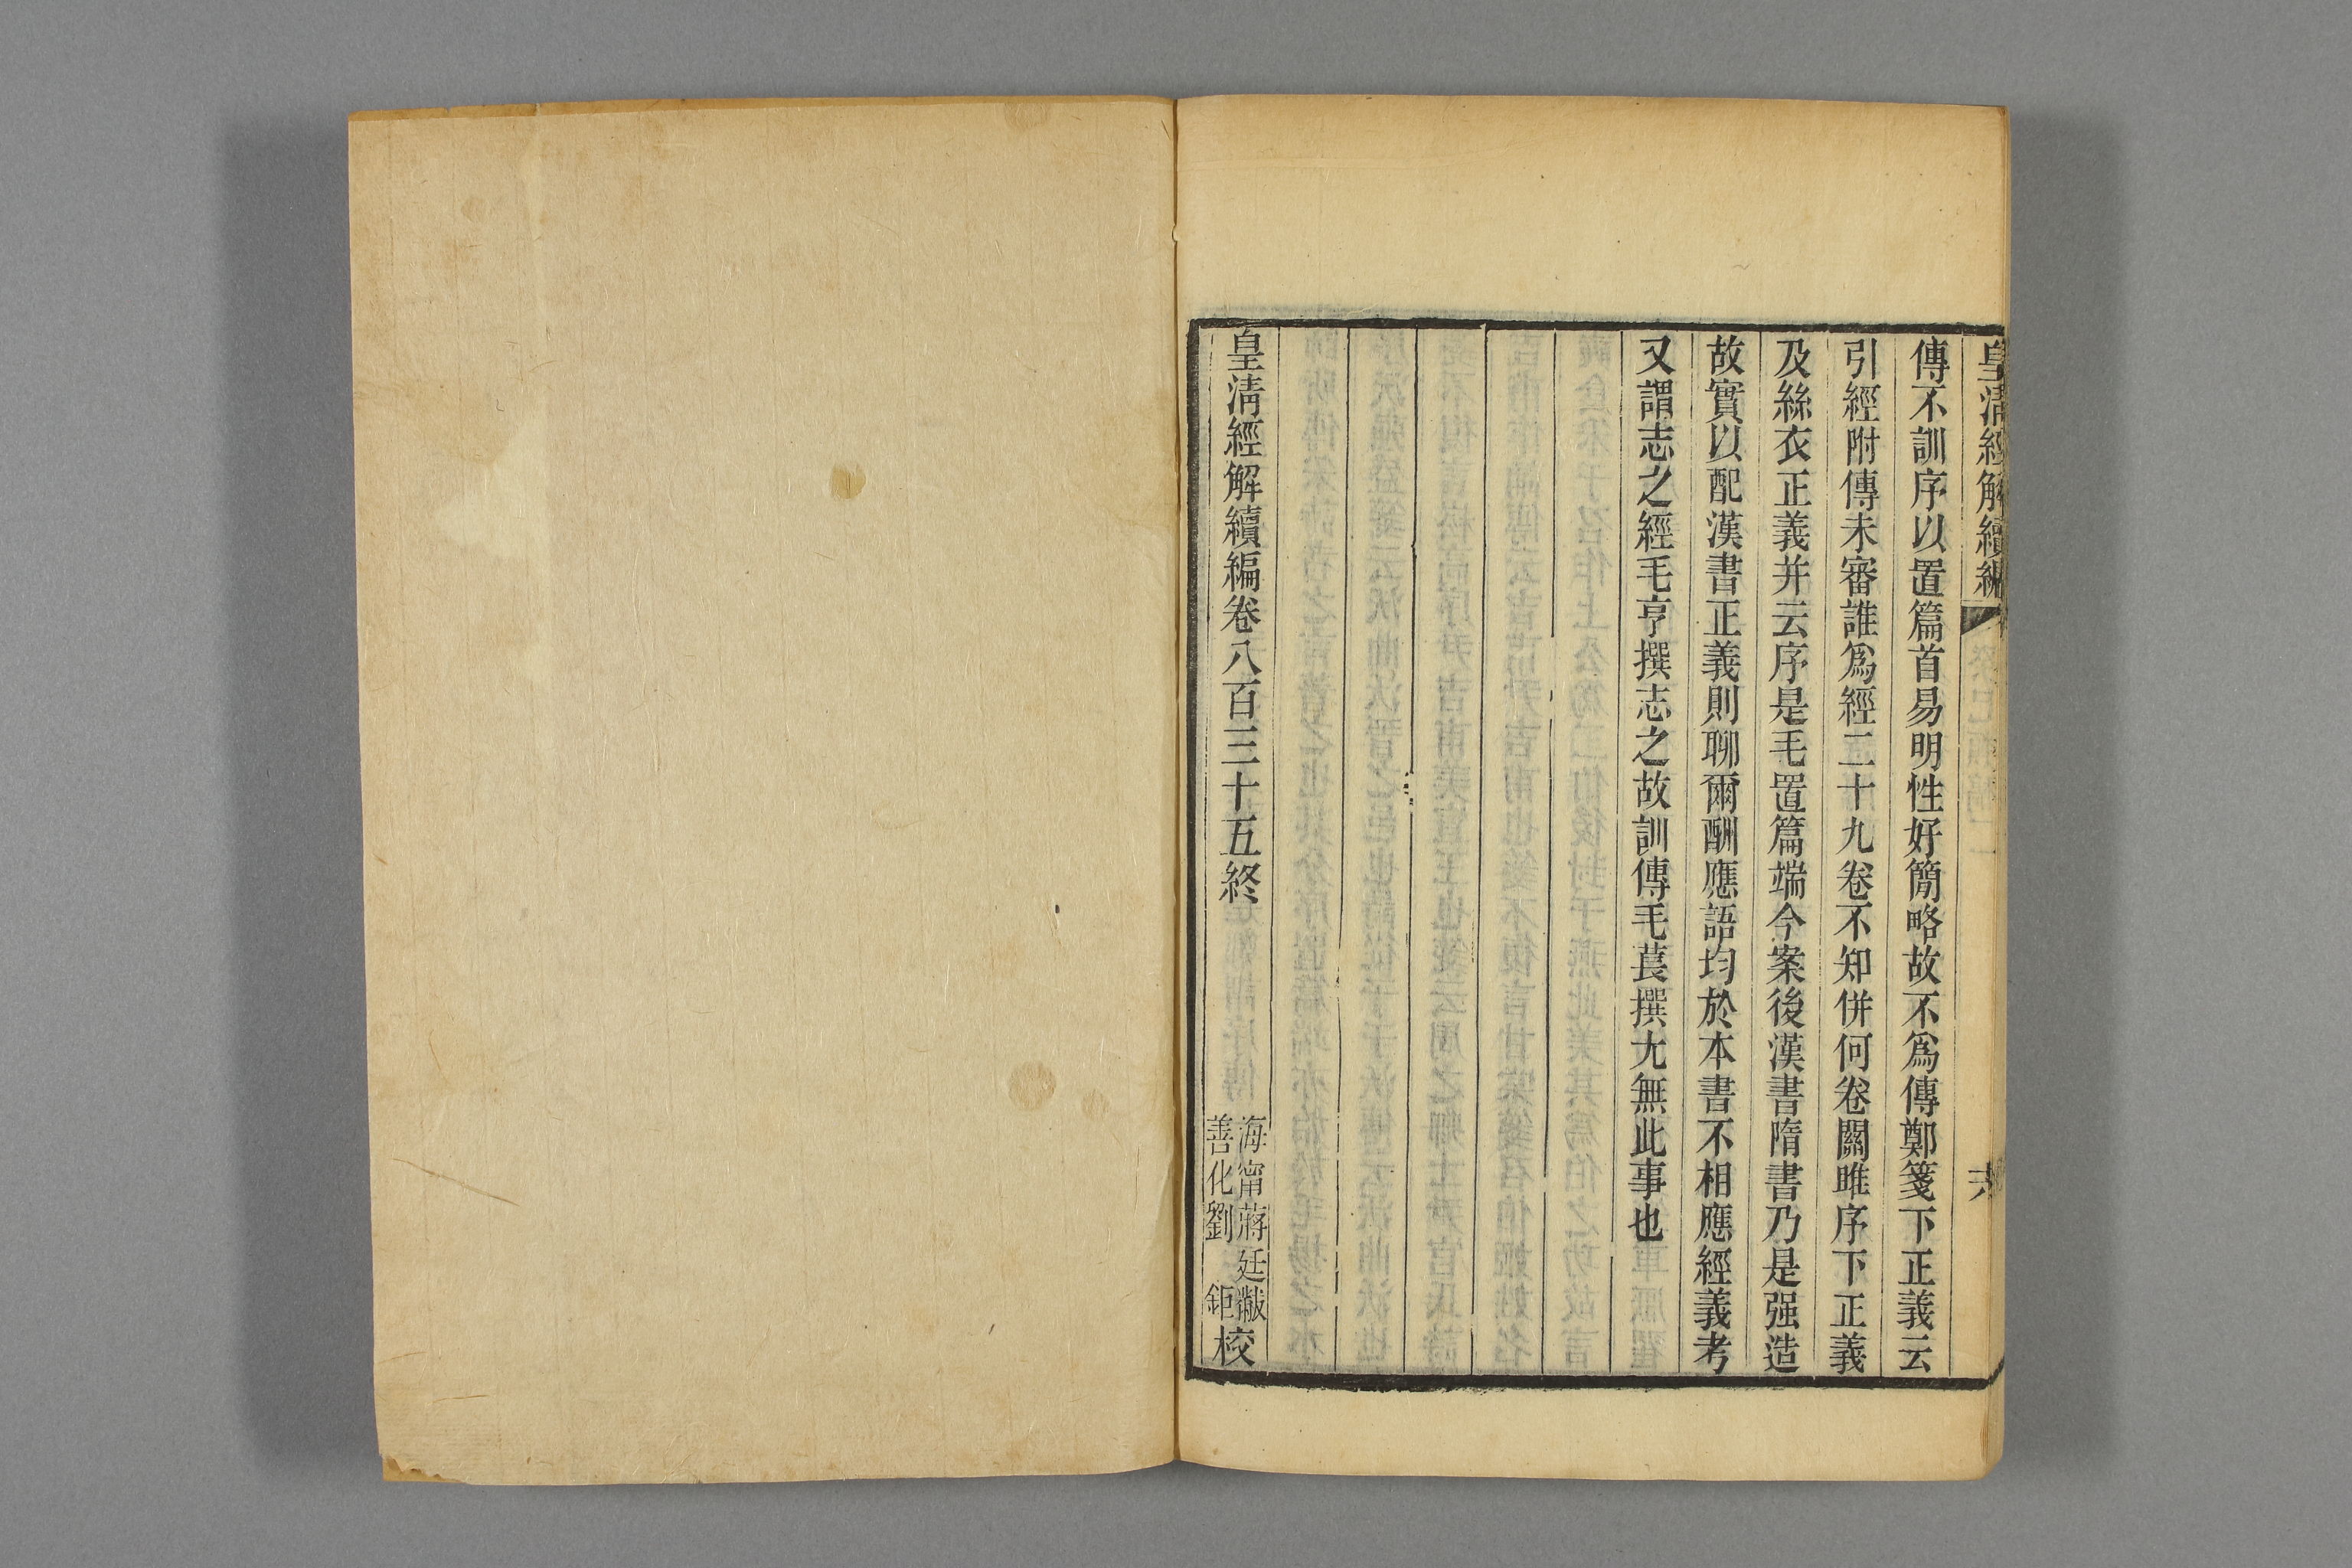 皇清經解續編
六
傳不訓序以置篇首易明性好簡略故不爲傳鄭箋下正義云
引經附傳未審誰爲經二十九卷不知併何卷關雎序下正義
及絲衣正義并云序是毛置篇端今案後漢書隋書乃是强造
故實以配漢書正義則聊爾酬應語均於本書不相應經義考
又謂志之經毛亨撰志之故訓傳毛萇撰尢無此事也
皇清經解續編卷八百三十五終
海甯蔣廷黻
善化劉 鉅
校